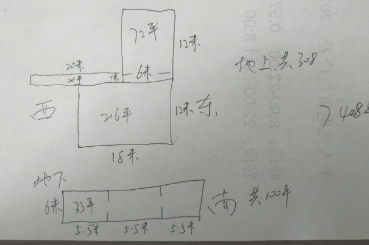 72平
12米
20米
20平
6米
地上共308
西
216平
12米
东
18米
地下
6米
33平
南
共100平
5.5米
5.5米
5.5米